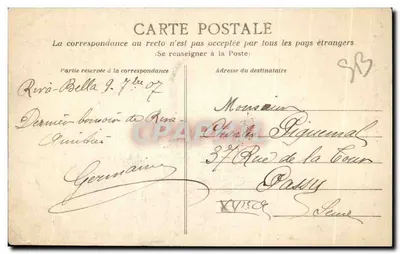 CARTE POSTALE
La correspondance au recto n'est pas acceptée par tous les pays étrangers
(Se renseigner à la Poste)
Partie réservée à la correspondance
Adresse du destinataire
Riva-Bella 9. 7bre 07
Dernier bonsoir de Riva
Germaine
Monsieur
Charles
37 Rue de la Tour
Passy
Seine